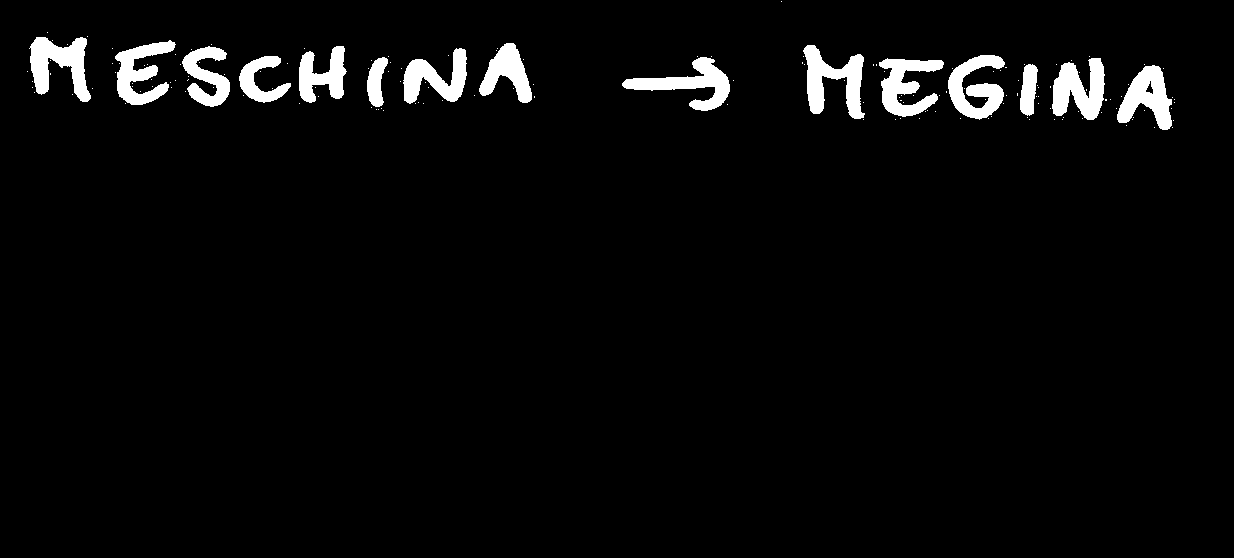 MESCHINA → MEGINA